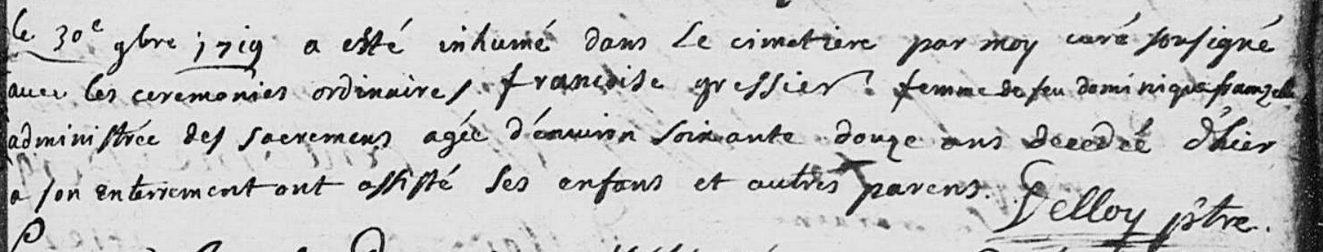 le 30e gbre 1719 a esté inhumé dans le cimetiere par moy curé sousigné
avec les ceremonies ordinaires francoise gressier femme de feu dominique
administrée des sacremens agée d'environ soixante douze ans decedée d'hier
a son enterrement ont assisté ses enfans et autres parens. Delloy ptre.